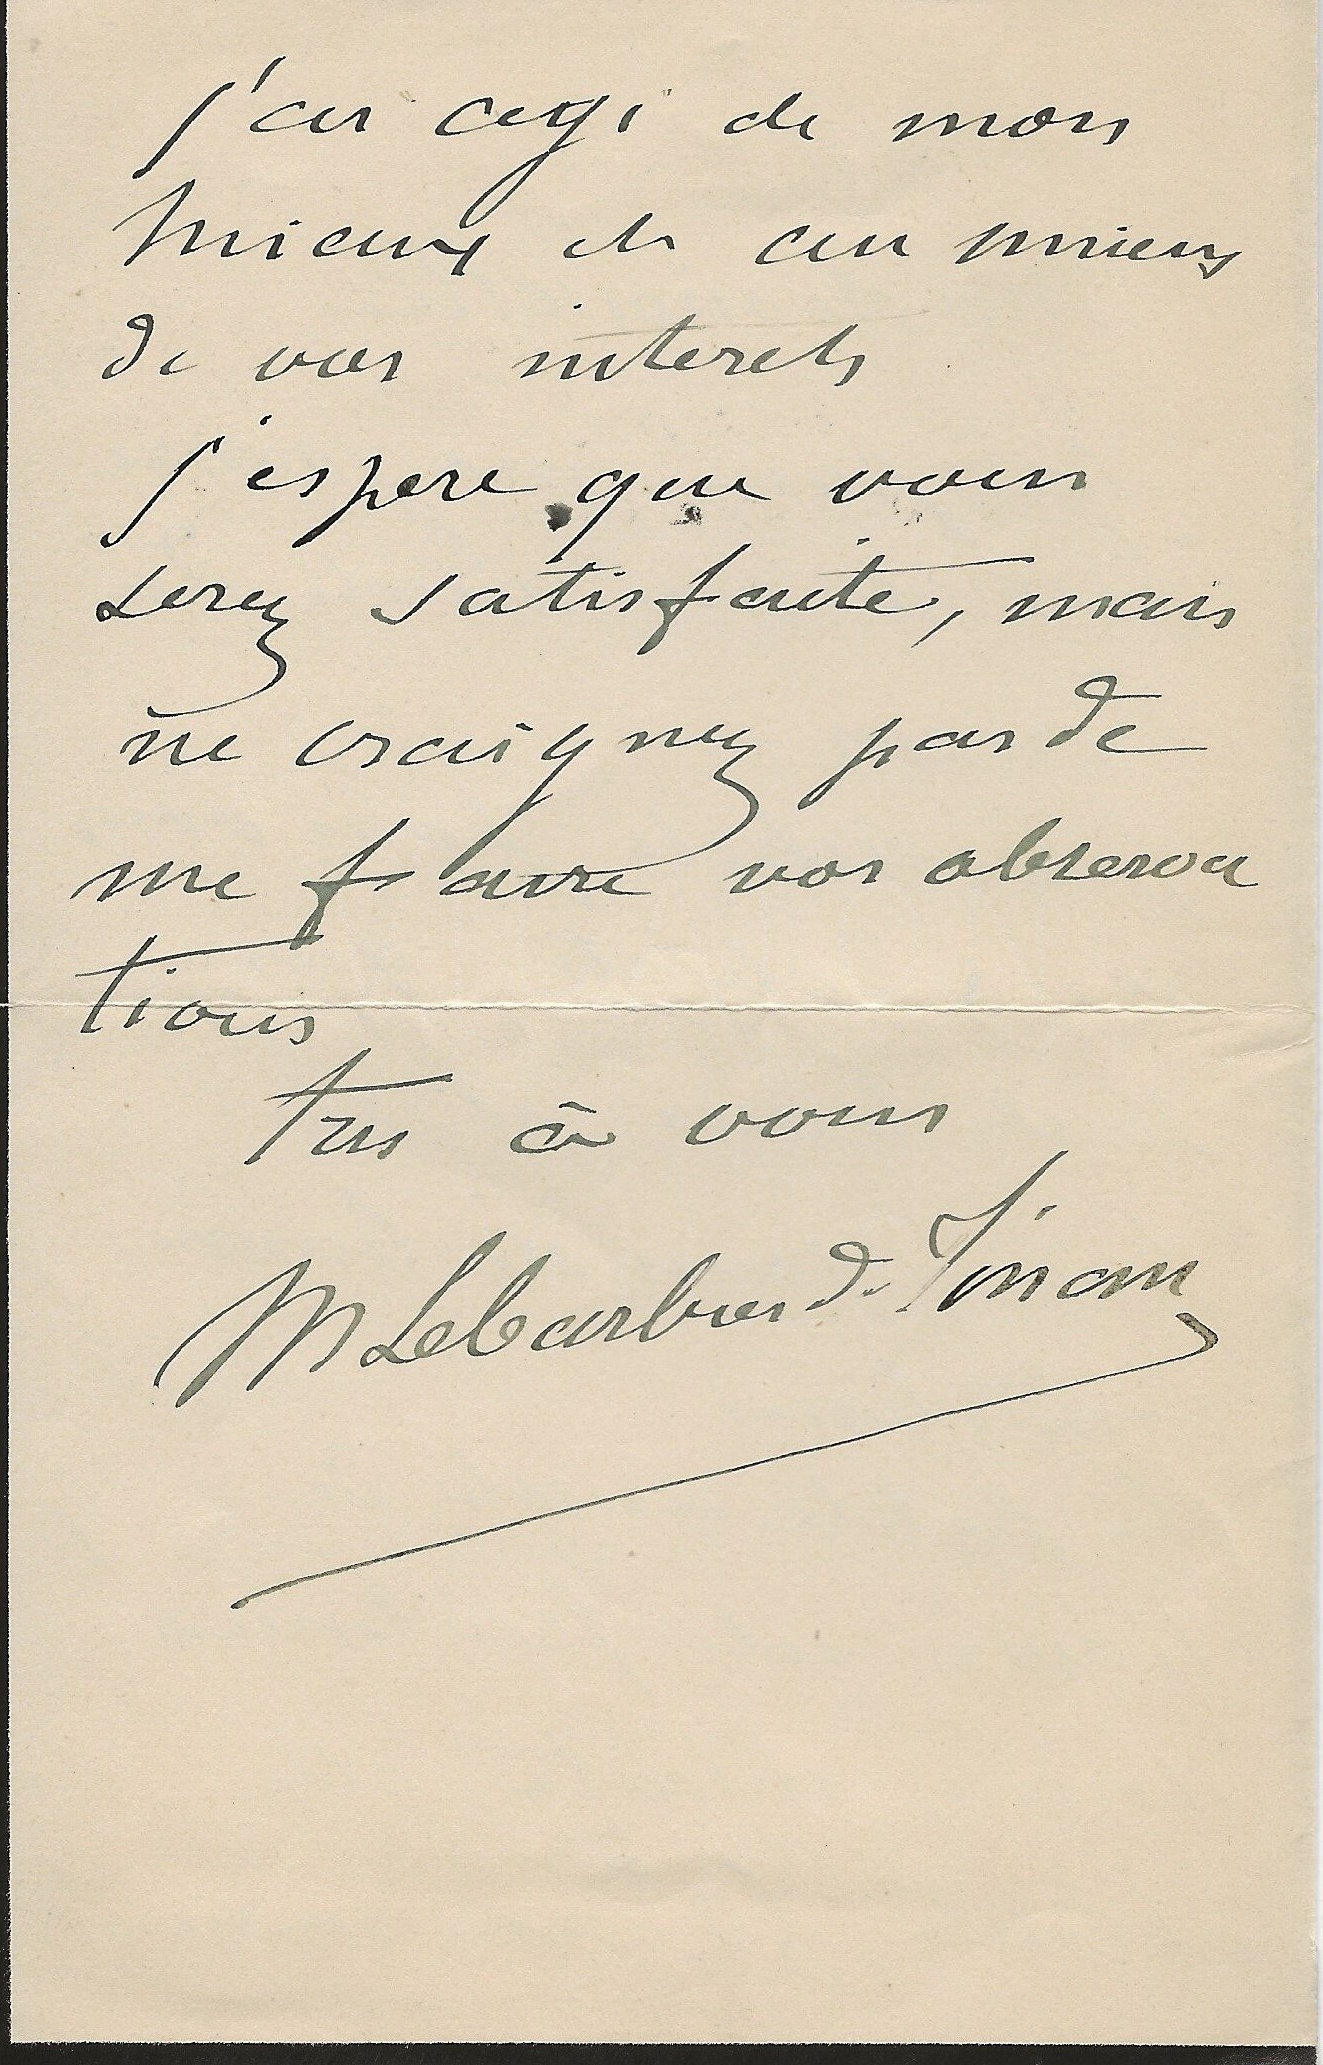 j'ai agi de mon
mieux et au mieux
de vos interets
j'espere que vous
serez satisfaite, mais
ne craignez pas de
me faire vos observa
tions
Très à vous
M Lebarbier de Tinan